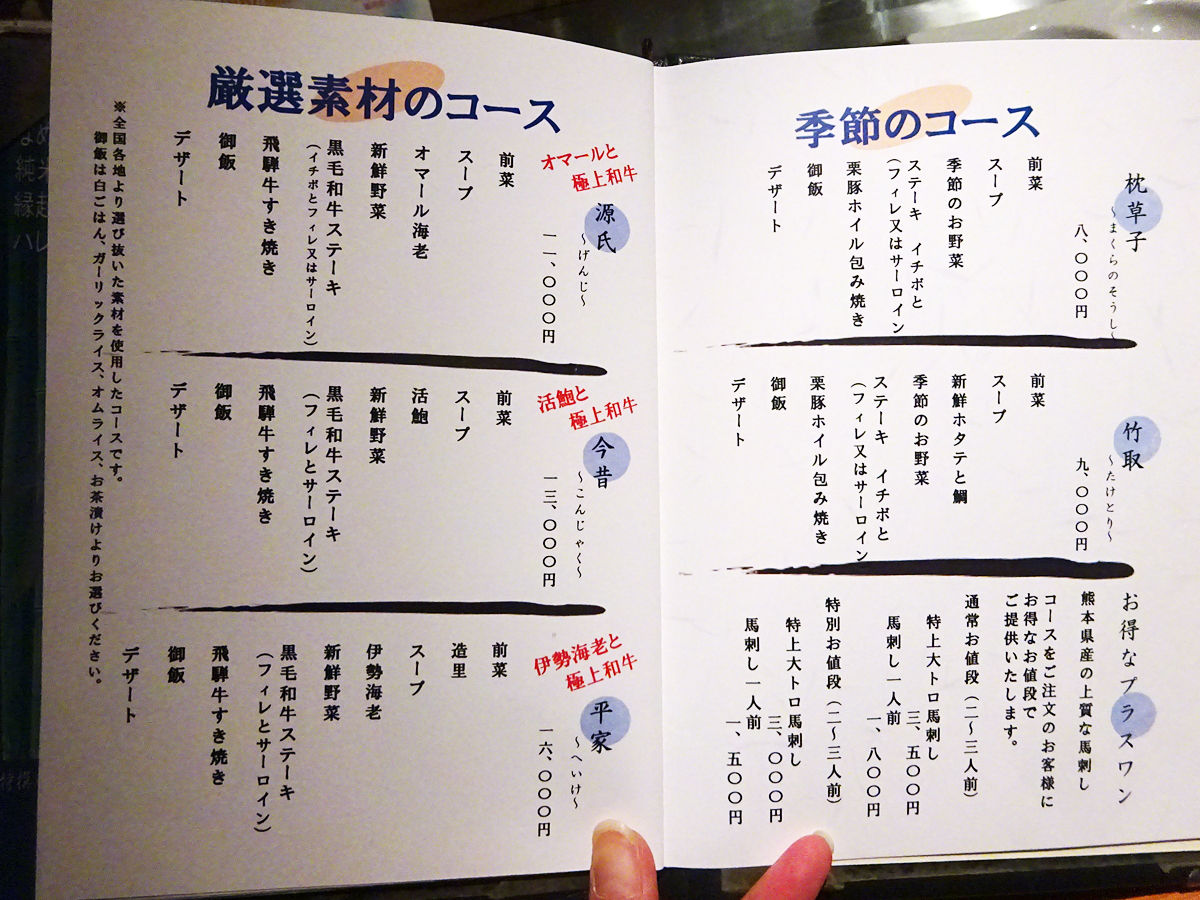 季節のコース
枕草子
～まくらのそうし～
八、〇〇〇円
前菜
スープ
季節のお野菜
ステーキ　イチボと
（フィレ又はサーロイン）
栗豚ホイル包み焼き
御飯
デザート
竹取
～たけとり～
九、〇〇〇円
前菜
スープ
新鮮ホタテと鯛
季節のお野菜
ステーキ　イチボと
（フィレ又はサーロイン）
栗豚ホイル包み焼き
御飯
デザート
お得なプラスワン
熊本県産の上質な馬刺し
コースをご注文のお客様に
お得なお値段で
ご提供いたします。
通常お値段（二～三人前）
特上大トロ馬刺し
三、五〇〇円
馬刺し一人前
一、八〇〇円
特別お値段（二～三人前）
特上大トロ馬刺し
三、〇〇〇円
馬刺し一人前
一、五〇〇円
厳選素材のコース
オマールと
極上和牛
源氏
～げんじ～
一一、〇〇〇円
前菜
スープ
オマール海老
新鮮野菜
黒毛和牛ステーキ
（イチボとフィレ又はサーロイン）
飛騨牛すき焼き
御飯
デザート
活鮑と
極上和牛
今昔
～こんじゃく～
一三、〇〇〇円
前菜
スープ
活鮑
新鮮野菜
黒毛和牛ステーキ
（フィレとサーロイン）
飛騨牛すき焼き
御飯
デザート
伊勢海老と
極上和牛
平家
～へいけ～
一六、〇〇〇円
前菜
造里
スープ
伊勢海老
新鮮野菜
黒毛和牛ステーキ
（フィレとサーロイン）
飛騨牛すき焼き
御飯
デザート
※全国各地より選び抜いた素材を使用したコースです。
御飯は白ごはん、ガーリックライス、オムライス、お茶漬けよりお選びください。